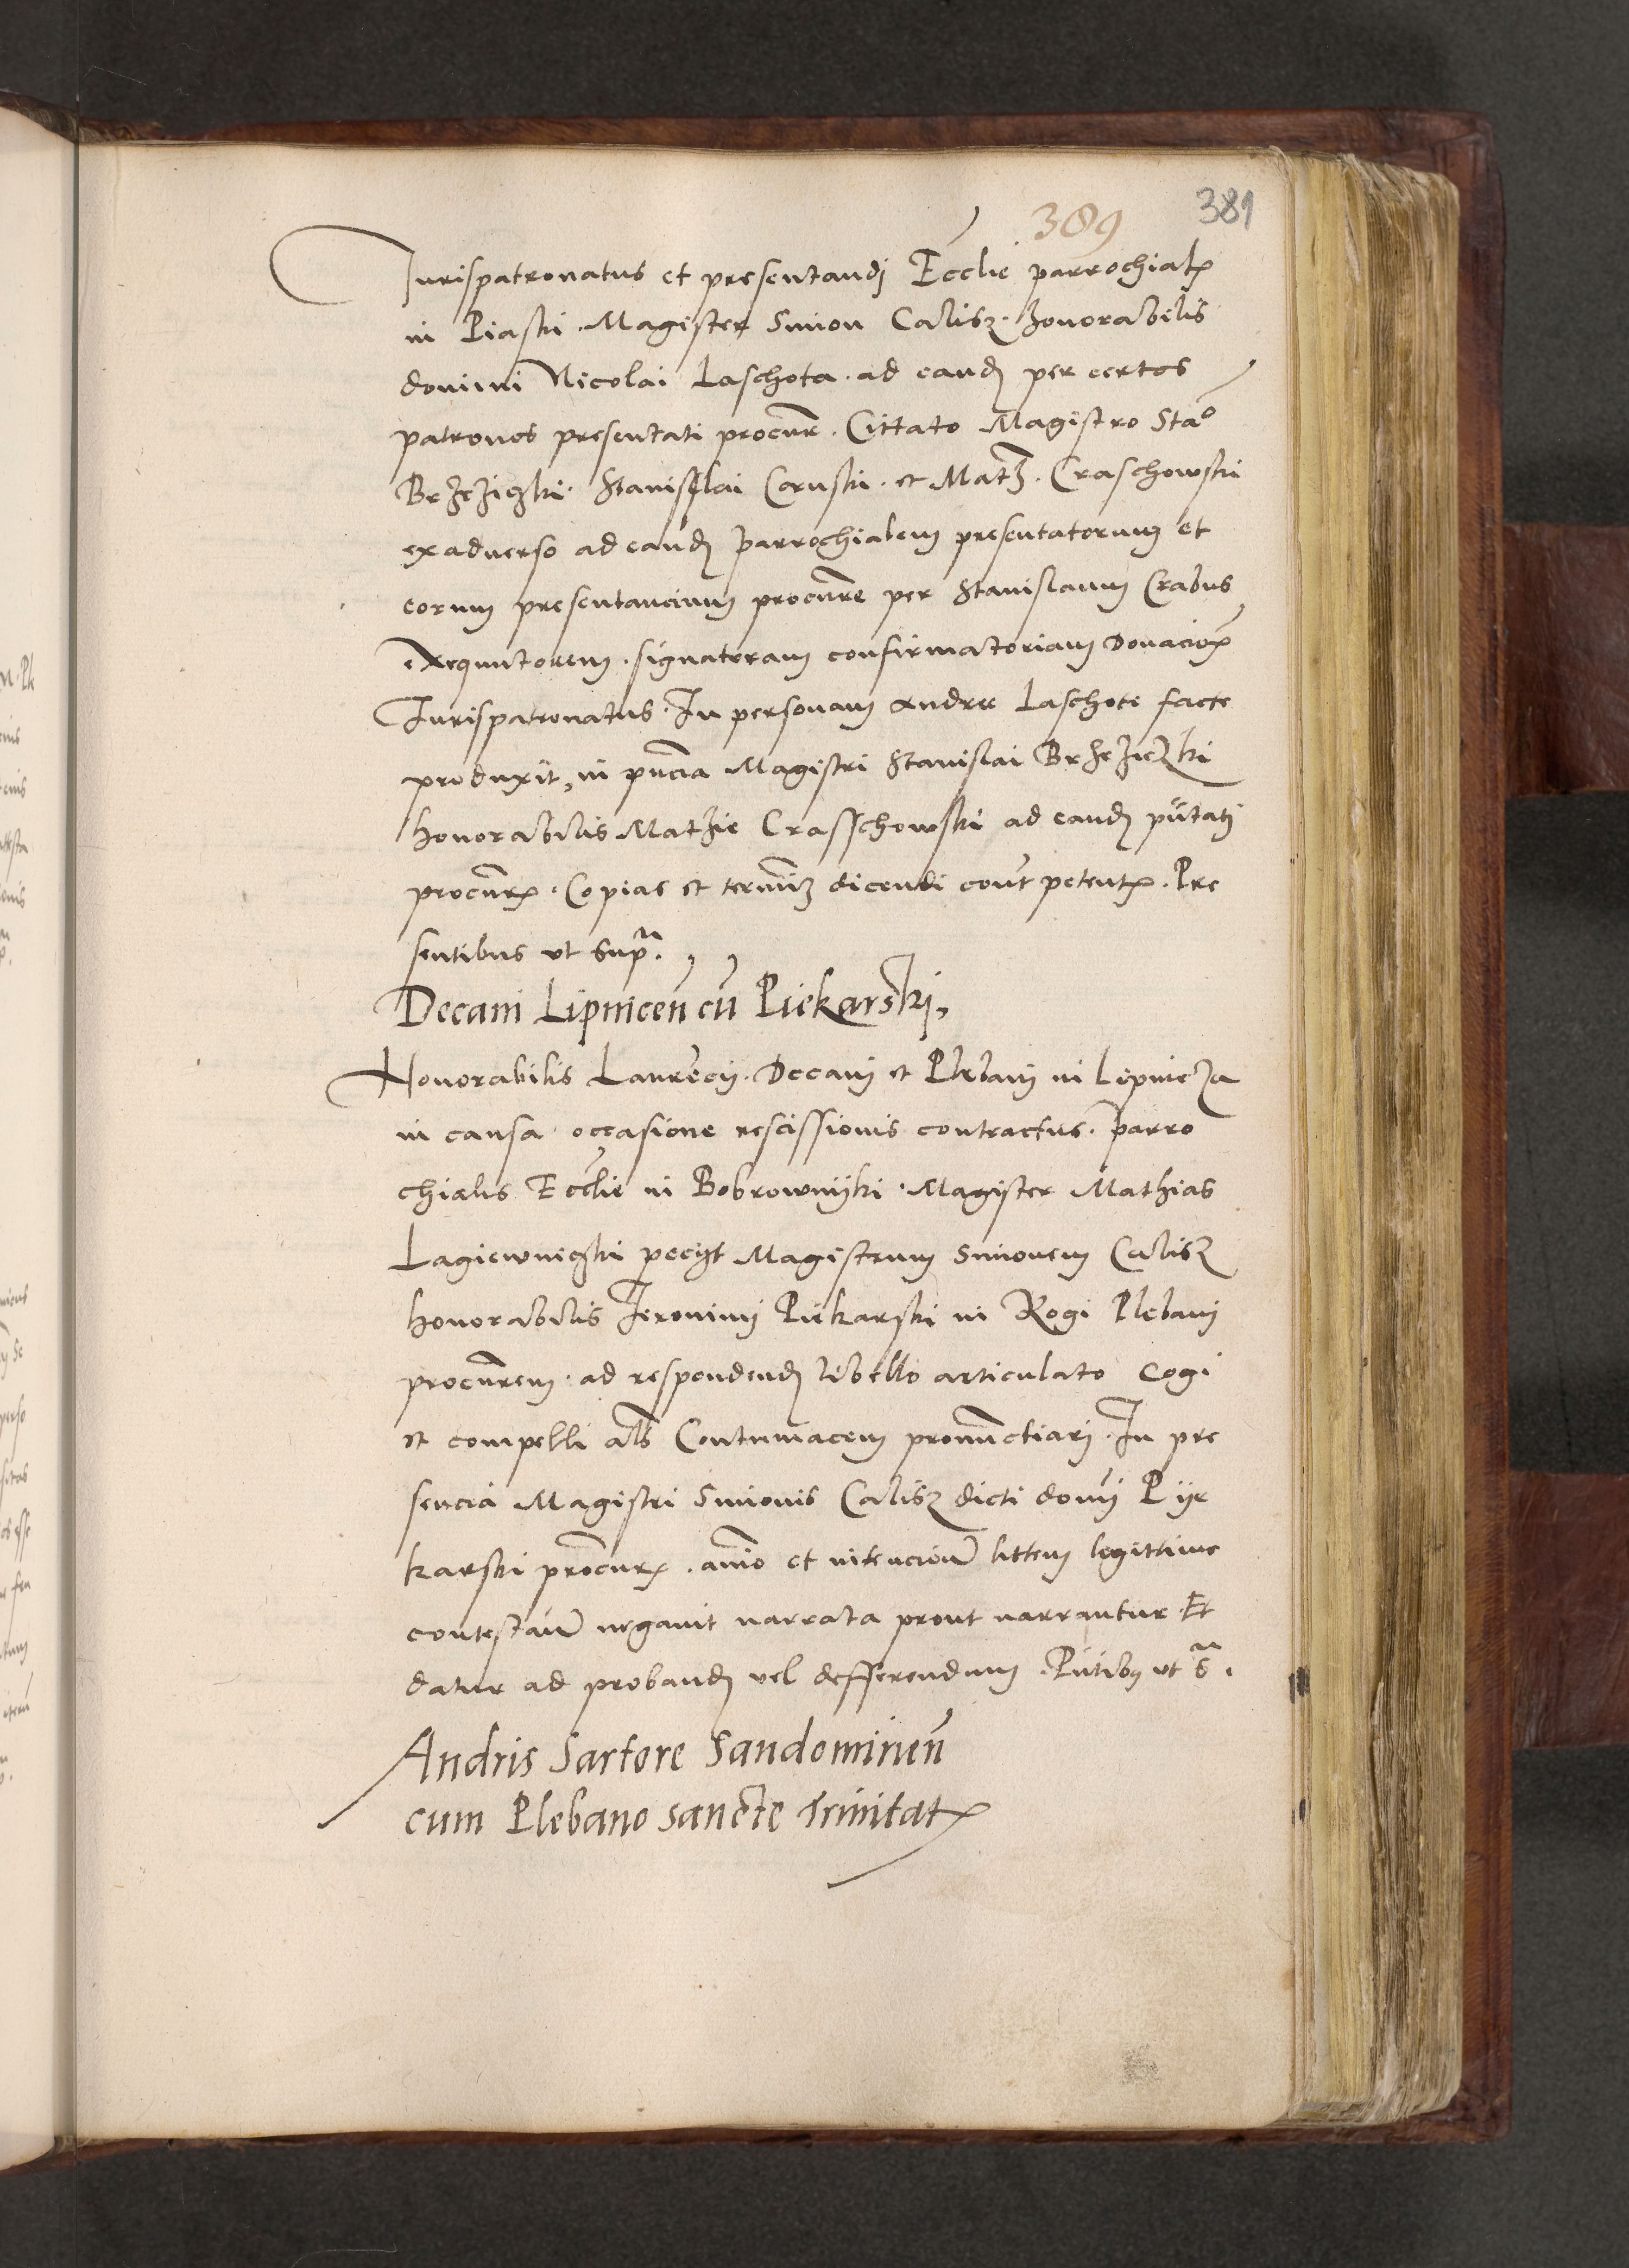 389 381
Jurispatronatus et presentandj Ecclie parrochialis
in Piaski. Magister Simon Calisz. Honorabilis
domini Nicolai Laschota. ad eandem per certos
patronos presentati procur. Cittato Magistro Stao
Brzeziczki. Stanislai Caruski. et Mathie. Craschowski
exaduerso ad eandem parrochialem presentatorum et
eorum presentancium procure per Stanislaum Crabus
exequutorem. signaturam confirmatoriam Donacionis
Jurispatronatus. In personam Andree Laschote facte
produxit, in pncia Magistri Stanislai Brzeziczki
Honorabilis Mathie Crasschowski ad eandem pntati
procuris. Copias et terminum dicendi cont petentis. Pre
sentibus vt supra.
Decani Lipnicen cu Piekarskj,
Honorabilis Laurecij. Decani et Plebani in Lipnicza
in causa occasione rescissionis contractus. parro
chialis Ecclie in Bobrownijki. Magister Mathias
Lagiewniczki pecijt Magistrum Simonem Calisz
Honorabilis Jeronimi Piekarski in Rogi Plebani
procurem. ad respondendum libello articulato cogi
et compelli als Contumacem pronunctiari. In pre
sencia Magistri Simonis Calisz dicti domi Pije
karski procuris. animo et intencione littem legittime
contestan negauit narrata prout narrantur. Et
datur ad probandum vel defferendum. Pntibus vt s.
Andris Sartore Sandominen
cum Plebano sancte Trinitatis